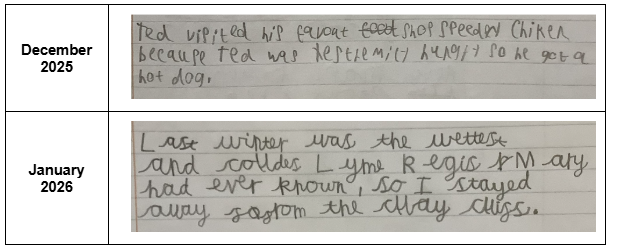 December 2025
Ted visited his favout food shop speedey Chiken
because Ted was hungry so he got a
hot dog.
January 2026
Last winter was the wettest
and colldes Lyme Regis Mary
had ever known, so I stayed
away the clay cliffs.